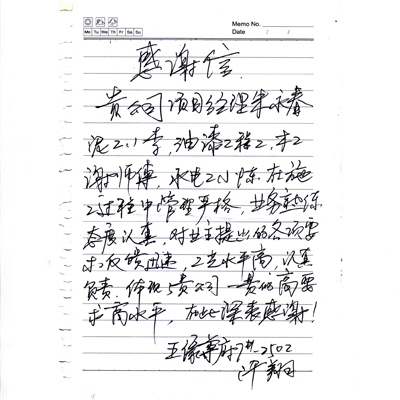 Memo No.
Mo Tu We Th Fr Sa Su
Date / /
感谢信
贵公司项目经理朱永春
泥工小李,油漆工程工,木工
谢师傅,水电工小陈在施
工过程中管理严格,业务熟练
态度认真,对业主提出的各项要
求反馈迅速,工艺水平高,认真
负责.体现贵公司一贵的高要
求高水平,在此深表感谢!
2502
许翔